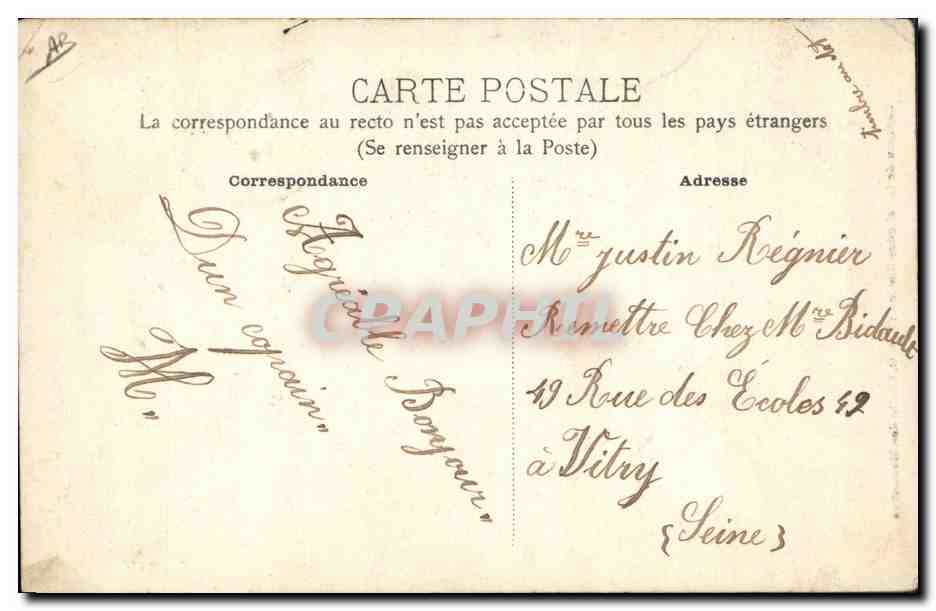 AB
Timbre au dos
CARTE POSTALE
La correspondance au recto n'est pas acceptée par tous les pays étrangers
(Se renseigner à la Poste)
Correspondance
Agréable Bonjour
Dun copain
M
Adresse
Mre Justin Régnier
Remettre Chez Mre Bidault
49 Rue des Écoles 49
à Vitry
(Seine)
CPAPHIL